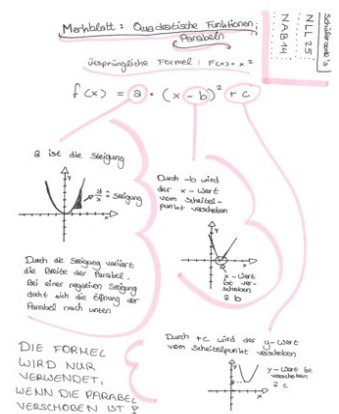 Merkblatt: Quadratische Funktionen;
Parabeln
Schülercode's
NLL25
NAB14
ursprüngliche Formel: F(x) = x²
f(x) = a · (x - b)² + c
a ist die Steigung
y/x = Steigung
Durch die Steigung variiert
die Breite der Parabel.
Bei einer negativen Steigung
dreht sich die Öffnung der
Parabel nach unten
Durch -b wird
der x-Wert
vom Scheitel-
punkt verschoben
x-Wert
ist ver-
schoben
a b
Durch +c wird der y-Wert
vom Scheitelpunkt verschoben
y-Wert ist
verschoben
a c
DIE FORMEL
WIRD NUR
VERWENDET,
WENN DIE PARABEL
VERSCHOBEN IST!